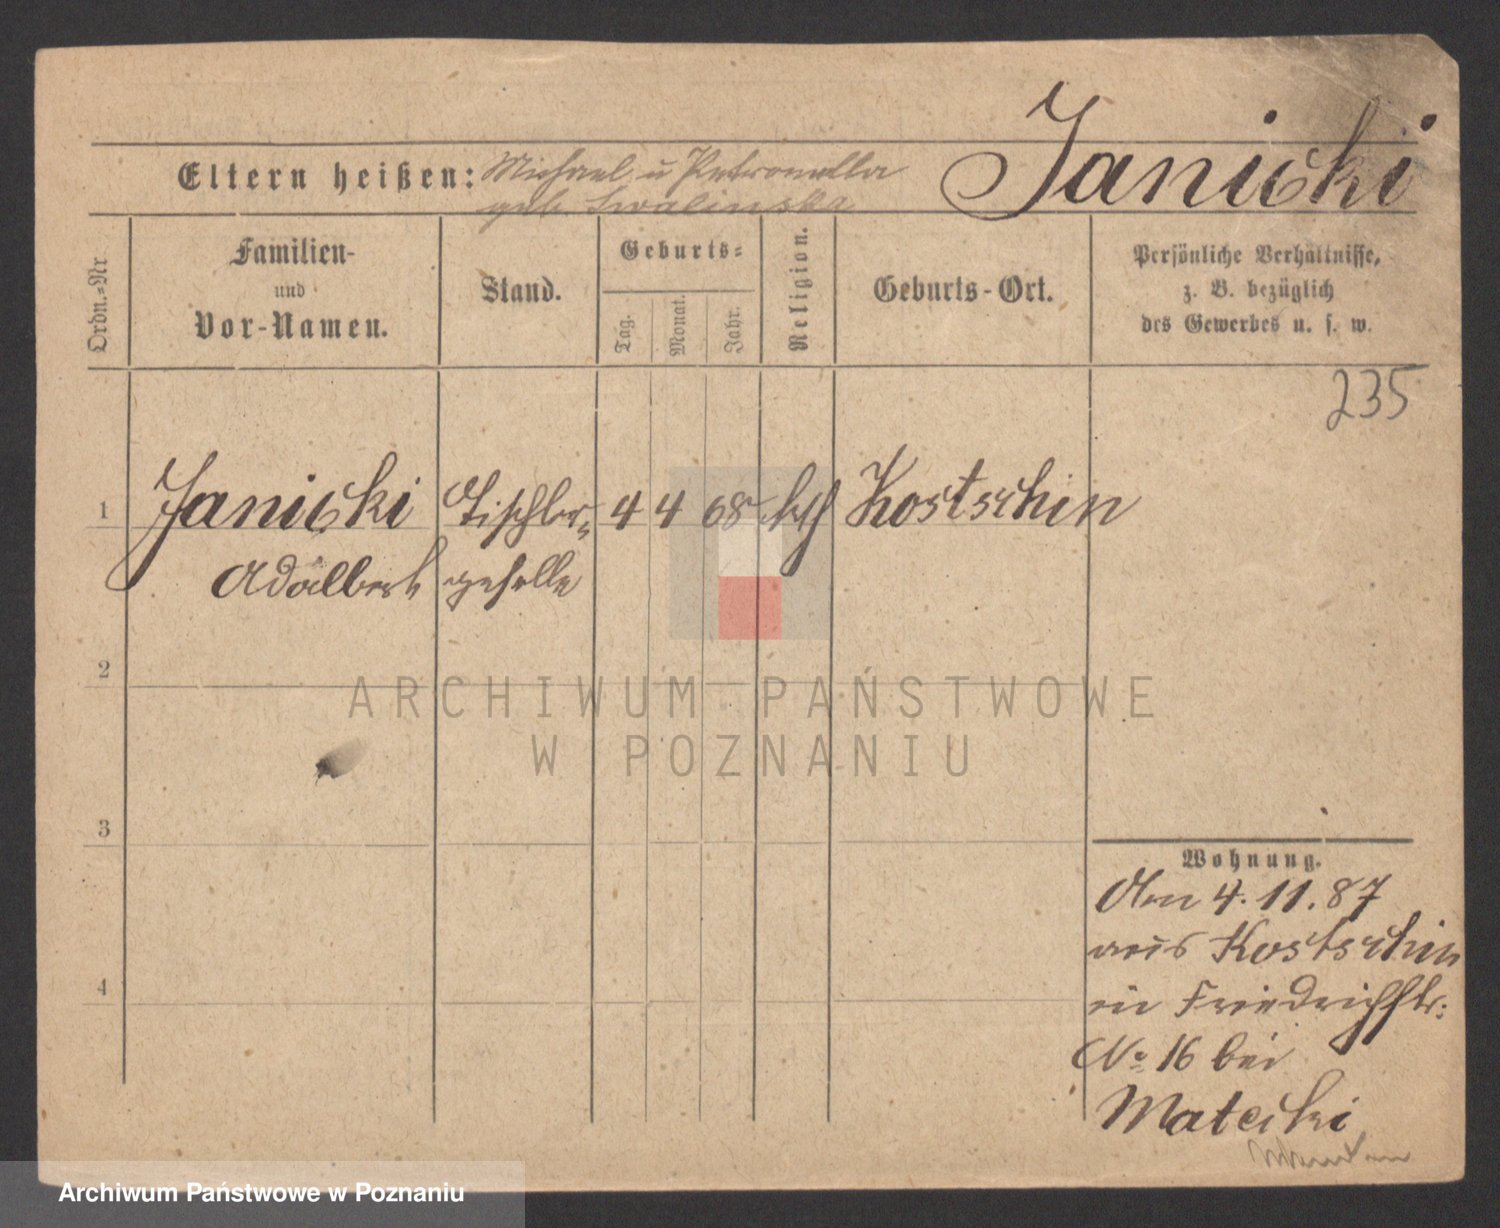 Janicki
Eltern heißen: Michael u Petronella
geb. Swalinska
Ordn.-Nr
Familien-
und
Vor-Namen.
Stand.
Geburts-
Tag.
Monat.
Jahr.
Religion.
Geburts-Ort.
Persönliche Verhältnisse,
z. B. bezüglich
des Gewerbes u. s. w.
235
1 Janicki Tischler- 4 4 68 kth Kostschin
Adalbert geselle
2
3
4
Wohnung.
Den 4. 11. 87
aus Kostschin
in Friedrichstr:
No 16 bei
Matecki
ARCHIWUM PAŃSTWOWE
W POZNANIU
Archiwum Państwowe w Poznaniu